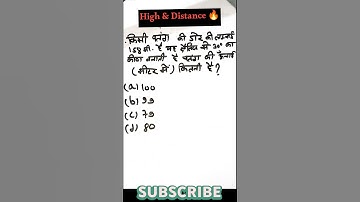 High & Distance 🔥
किसी पतंग की डोर की लम्बाई
158 मी. है यह क्षैतिज से 30° का
कोण बनाती है पतंग की ऊँचाई
(मीटर में) कितनी है?
(a) 100
(b) 99
(c) 79
(d) 80
SUBSCRIBE